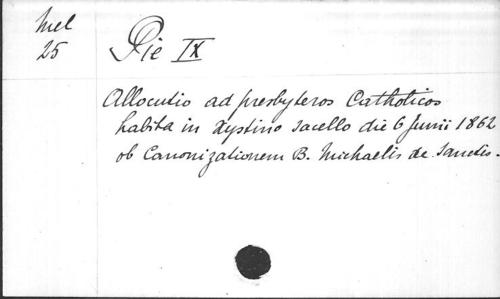 Mel
25
Pie IX
Allocutio ad presbyteros Catholicos
habita in Xystino sacello die 6 Junii 1862
ob Canonizationem B. Michaelis de Sanctis.